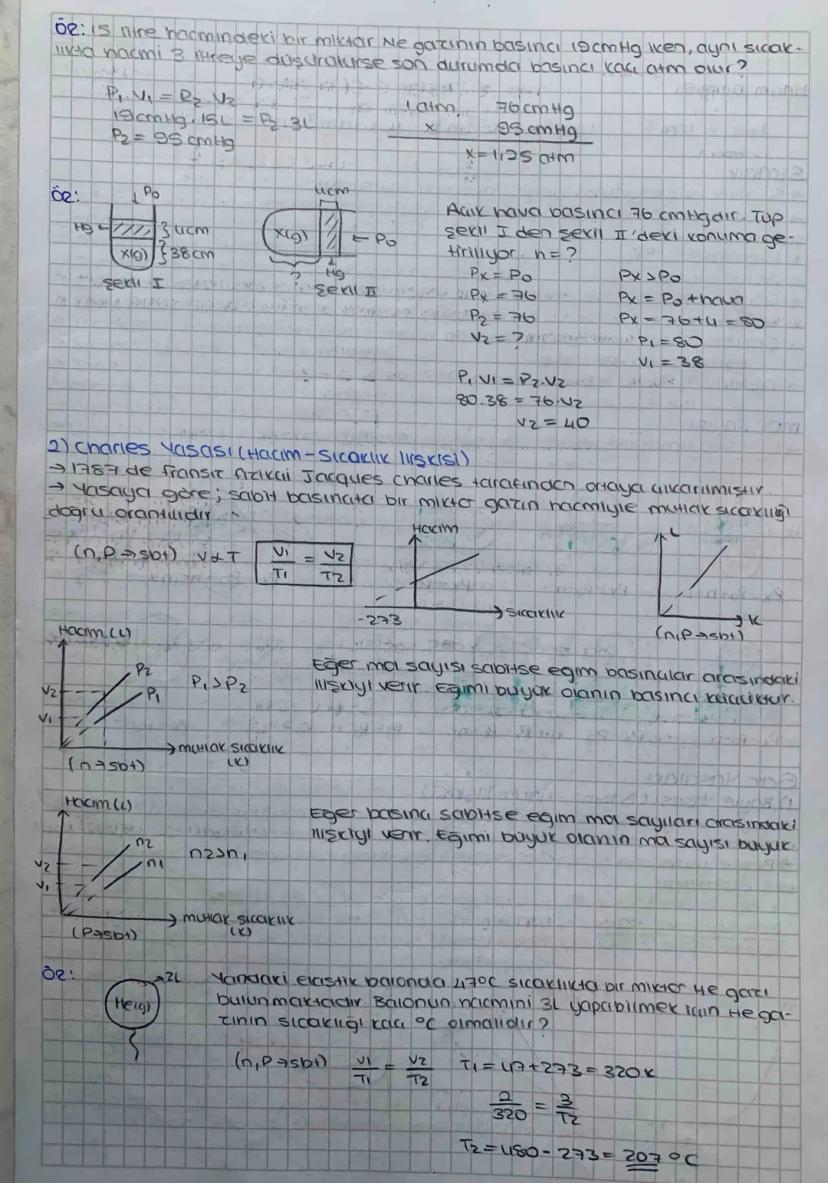 Ör: 15 litre hacmindeki bir miktar Ne gazının basıncı 19cmHg iken, aynı sıcak-
lıkta hacmi 3 litreye düşürülürse son durumda basıncı kaç atm olur?
P₁.V₁ = P₂.V₂
19cmHg.15L = P₂.3L
P₂ = 95 cmHg
1 atm 76 cmHg
x 95 cmHg
x=1,25 atm
Ör:
↓P₀
Hg
4cm
x(g)
38cm
Şekil I
4cm
x(g)
← P₀
?
Hg
Şekil II
Açık hava basıncı 76 cmHgdır. Tüp
şekil I den şekil II'deki konuma ge-
tiriliyor. n=?
Px = P₀
Px = 76
P₂ = 76
V₂ = ?
Px > P₀
Px = P₀ + hava
Px = 76+4 = 80
P₁ = 80
V₁ = 38
P₁.V₁ = P₂.V₂
80.38 = 76.V₂
V₂ = 40
2) Charles Yasası (Hacim-Sıcaklık İlişkisi)
→ 1787 de Fransız fizikçi Jacques Charles tarafından ortaya çıkarılmıştır.
→ Yasaya göre; sabit basınçta bir miktar gazın hacmiyle mutlak sıcaklığı
doğru orantılıdır.
(n,P→sbt) V∝T V₁/T₁ = V₂/T₂
Hacim
Sıcaklık
-273
L
K
(n,P→sbt)
Hacim (L)
P₂
P₁
V₂
V₁
P₁>P₂
mutlak sıcaklık
(K)
(n→sbt)
Eğer mol sayısı sabitse eğim basınçlar arasındaki
ilişkiyi verir. Eğimi büyük olanın basıncı küçüktür.
Hacim (L)
n₂
n₁
V₂
V₁
n2>n₁
mutlak sıcaklık
(K)
(P→sbt)
Eğer basınç sabitse eğim mol sayıları arasındaki
ilişkiyi verir. Eğimi büyük olanın mol sayısı büyük.
Ör:
2L
He(g)
Yandaki elastik balonda 47°C sıcaklıkta bir miktar He gazı
bulunmaktadır. Balonun hacmini 3L yapabilmek için He ga-
zının sıcaklığı kaç °C olmalıdır?
(n,P→sbt) V₁/T₁ = V₂/T₂ T₁ = 47+273 = 320K
2/320 = 3/T₂
T₂ = 480 - 273 = 207 °C